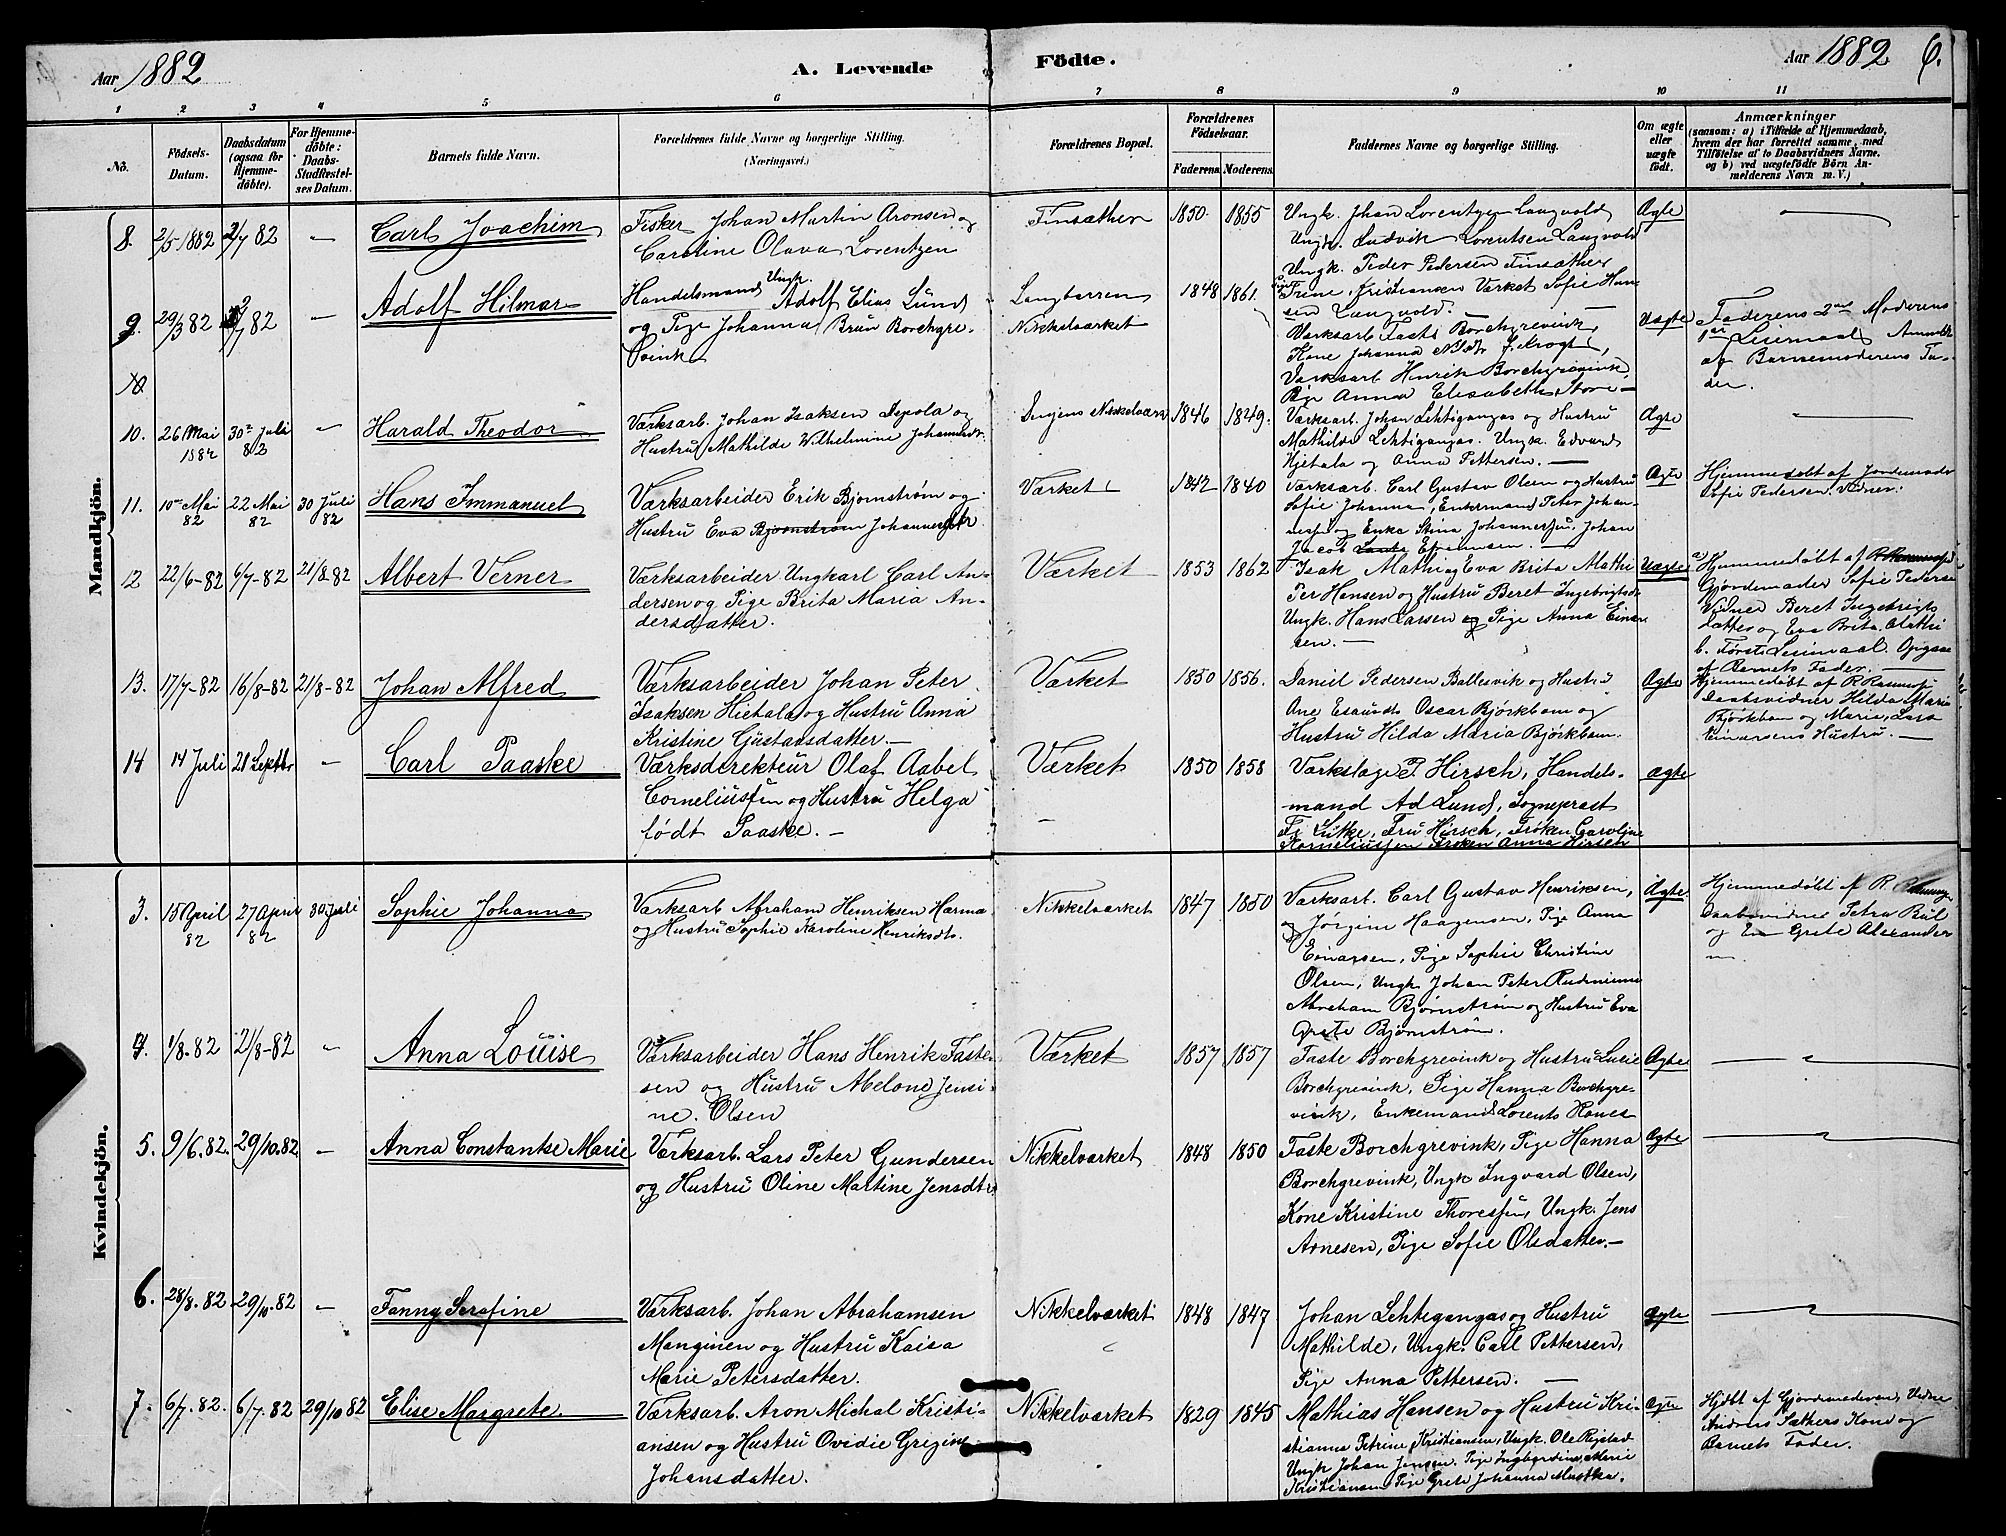 Aar 1882
A. Levende
Födte.
Aar 1882
6.
1 2 3 4 5 6 7 8 9 10 11
No.
Födsels-Datum.
Daabsdatum (ogsaa for Hjemme-döbte).
For Hjemme-döbte: Daabs-Stadfæstel-ses Datum.
Barnets fulde Navn.
Forældrenes fulde Navne og borgerlige Stilling.
(Næringsvei.)
Forældrenes Bopæl.
Forældrenes Födselsaar.
Faderens Moderens
Faddernes Navne og borgerlige Stilling.
Om ægte eller uægte födt.
Anmærkninger
(saasom: a) i Tilfælde af Hjemmedaab,
hvem der har forrettet samme, med
Tilföielse af to Daabsvidners Navne.
og b) ved uægtefödte Börn An-
melderens Navn m. V.)
Mandkjön.
8. 2/5-1882 2/7 82 — Carl Joachim
Fisker Johan Martin Aronsen og
Caroline Olava Lorentzen
Finsæther 1850. 1855
Ungk. Johan Lorentzen Langvold
Ungk. Ludvik Lorentsen Langvold
Ungk. Peder Pedersen Finsæther
Ægte
9. 29/3 82 2/7 82 — Adolf Hilmar
Handelsmand Ungk. Adolf Elias Lund
og Pige Johanna Brun Borchgre-
vink
Nikkelværket
1848 1861.
Trine Kristiansen Værket Sofie Han
sen Langvold. —
Værksarb Taste Borchgrevink,
Kone Johanna
Værksarb Henrik Borchgrevink,
Pige Anna Elisabeth Store —
Uægte
Faderens 2det Moderens
1ste Leiermaal Anmeldt
af Barnemoderens Fa-
der.
10
10. 26 Mai 1882 30te Juli 82 — Harald Theodor
Værksarb. Johan Isaksen Depola og
Hustru Mathilde Wilhelmine
Nikkelværk 1846 1849.
Værksarb. Johan Lehtigangas og Hustru
Mathilde Lehtigangas. Ungk. Edvard
Hjetala og Anna Pettersen. —
Ægte
11. 10de Mai 82 22 Mai 82 30 Juli 82 Hans Immanuel
Værksarbeider Erik Bjørnstrøm og
Hustru Eva Bjørnstrøm
Værket 1842 1840
Værksarb. Carl Gustav Olsen og Hustru
Sofie Johanna, Enkemand Peter Johan-
nesen og Enke Stina Johannesen. Johan
Jacob
Ægte
Hjemmedøbt af Jordemoder
Sofie Pedersen. Vidner.
12 22/6-82 6/7-82 21/8 82 Albert Verner
Værksarbeider Ungkarl Carl An-
dersen og Pige Brita Maria An-
dersdatter.
Værket 1853 1862
Isak Mathi og Eva Brita Mathi
Per Hansen og Hustru Beret Ingebrigtsdr
Ungk. Hans Larsen og Pige Anna Einar
sen. —
Uægte
a) Hjemmedøbt af
Gjordemoder Sofie Peders
Vidner Beret Ingebrigts
datter og Eva Brita Mathi
b. Første Leiermaal. Opgave
af Barnets Fader. —
13. 17/7-82 16/8-82 21/8-82 Johan Alfred
Værksarbeider Johan Peter
Isaksen Hietala og Hustru Anna
Kristine Gustavsdatter. —
Værket 1850 1856.
Daniel Pedersen Ballesvik og Hustru
Ane Esausdtr Oscar Bjørkbom og
Hustru Hilda Maria Bjørkbom.
Ægte
Hjemmedøbt af R
Daabsvidner Hilda Maria
Bjørkbom og Maria, Lars
Einarsens Hustru. —
14 14 Juli 21 Septbr — Carl Paaske
Værksdirekteur Olaf Aabel
Corneliussen og Hustru Helga
født Paaske. —
Værket 1850 1858
Værkslæge P. Hirsch, Handels-
mand Ad Lund, Sogneprest
Fr Lütke, Fru Hirsch, Frøken Caroline
Korneliussen Frøken Anna Hirsch
ægte
Kvindekjön.
3. 15 April 82 27 April 82 30 Juli Sophie Johanna
Værksarb Abraham Henriksen Harma
og Hustru Sophie Karoline Henriksdtr.
Nikkelværket 1847 1850
Værksarb. Carl Gustav Henriksen,
og Jørgine Haagensen, Pige Anna
Einarsen, Pige Sophie Christine
Olsen, Ungk Johan Peter
Abraham Bjørnstrøm og Hustru Eva
Grete Bjørnstrøm.
Ægte
Hjemmedøbt af R.
Daabsvidner Petra Bul
og Grete Alexander
4. 1/8.82 21/8-82 — Anna Louise
Værksarbeider Hans Henrik Taste
sen og Hustru Abelone Jensi-
ne Olsen
Værket 1857 1857
Taste Borchgrevink og Hustru Lucie
Borchgrevink, Pige Hanna Borchgre-
vink, Enkemand Lorents Hanes
Ægte
5. 9/6.82. 29/10.82 — Anna Constantse Marie
Værksarb. Lars Peter Gundersen
og Hustru Oline Martine Jensdtr
Nikkelværket 1848 1850
Taste Borchgrevink, Pige Hanna
Borchgrevink, Ungk Ingvard Olsen,
Kone Kristine Thoresen, Ungk. Jens
Arnesen, Pige Sofie Olsdatter. —
Ægte
6. 28/8.82 29/10.82 — Fanny Serafine
Værksarb. Johan Abrahamsen
Manginen og Hustru Kaisa
Marie Petersdatter.
Nikkelværket 1848 1847
Johan Lehtigangas og Hustru
Mathilde, Ungk. Carl Pettersen,
Pige Anna Pettersen. —
Ægte
7. 6/7.82. 6/7.82 29/10 82 Elise Margrete
Værksarb. Aron Michal Kristi-
ansen og Hustru Ovidie Grigine
Johansdatter.
Nikkelværket 1829 1845
Mathias Hansen og Hustru Kri-
stianna Petrine Kristiansen, Ungk. Ole Rejstad
Ungk Johan Jensen. Pige Ingbordine Marie
Kristiansen Pige Grete Johanna Mustka.
Ægte
Hjdbt af Gjordemoderen, Vidne
Andreas Sæthers Kone og
Barnets Fader.